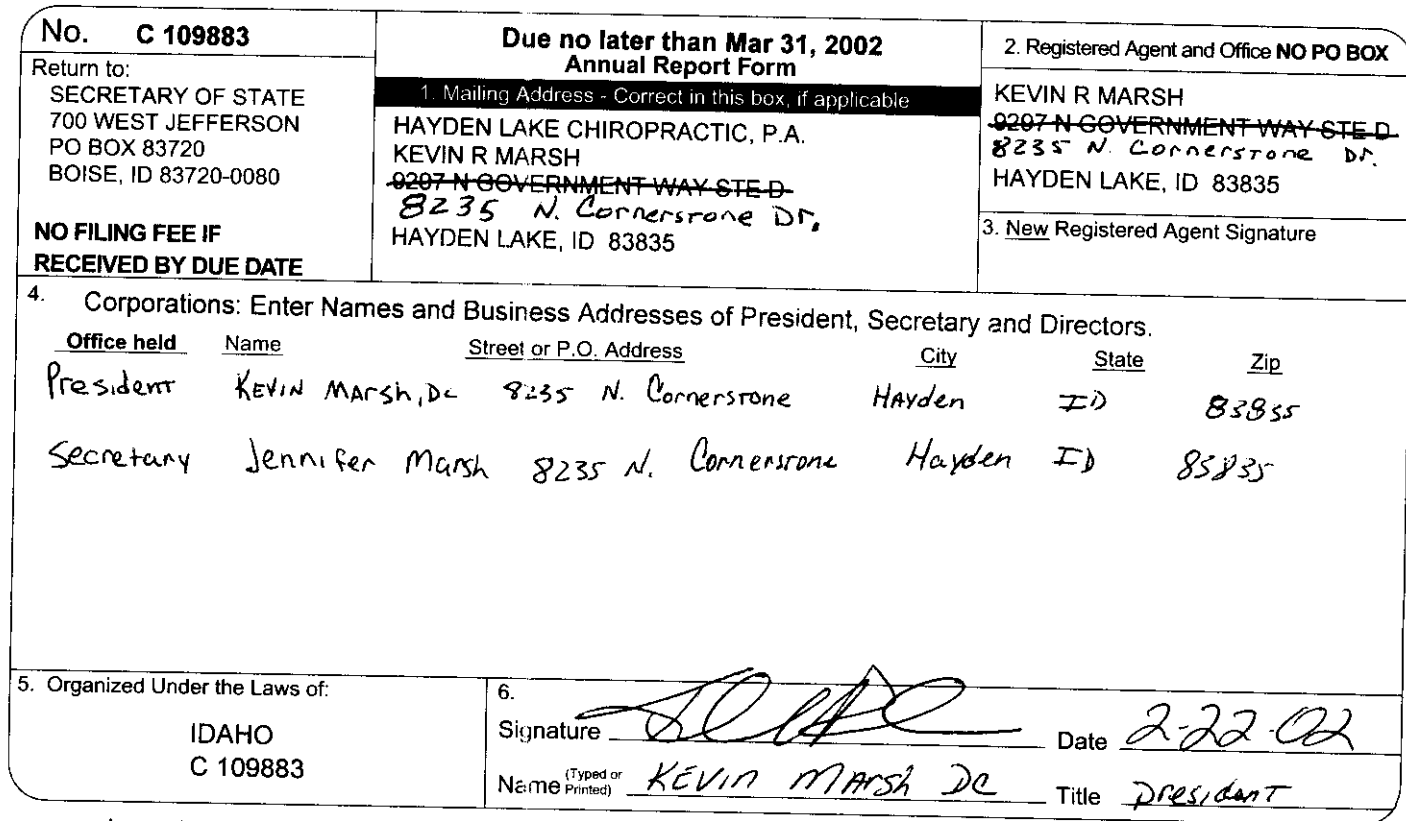 No. C 109883
Return to:
SECRETARY OF STATE
700 WEST JEFFERSON
PO BOX 83720
BOISE, ID 83720-0080
NO FILING FEE IF
RECEIVED BY DUE DATE
Due no later than Mar 31, 2002
Annual Report Form
1. Mailing Address - Correct in this box, if applicable
HAYDEN LAKE CHIROPRACTIC, P.A.
KEVIN R MARSH
9297 N GOVERNMENT WAY STE D
8235 N. Cornerstone Dr.
HAYDEN LAKE, ID 83835
2. Registered Agent and Office NO PO BOX
KEVIN R MARSH
9297 N GOVERNMENT WAY STE D
8235 N. Cornerstone Dr.
HAYDEN LAKE, ID 83835
3. New Registered Agent Signature
4. Corporations: Enter Names and Business Addresses of President, Secretary and Directors.
Office held Name Street or P.O. Address City State Zip
President KEVIN MArsh, DC 8235 N. Cornerstone HAyden ID 83835
Secretary Jennifer Marsh 8235 N. Cornerstone Hayden ID 83835
5. Organized Under the Laws of:
IDAHO
C 109883
6.
Signature Date 2-22-02
Name (Typed or Printed) KEVIN MArsh DC Title president